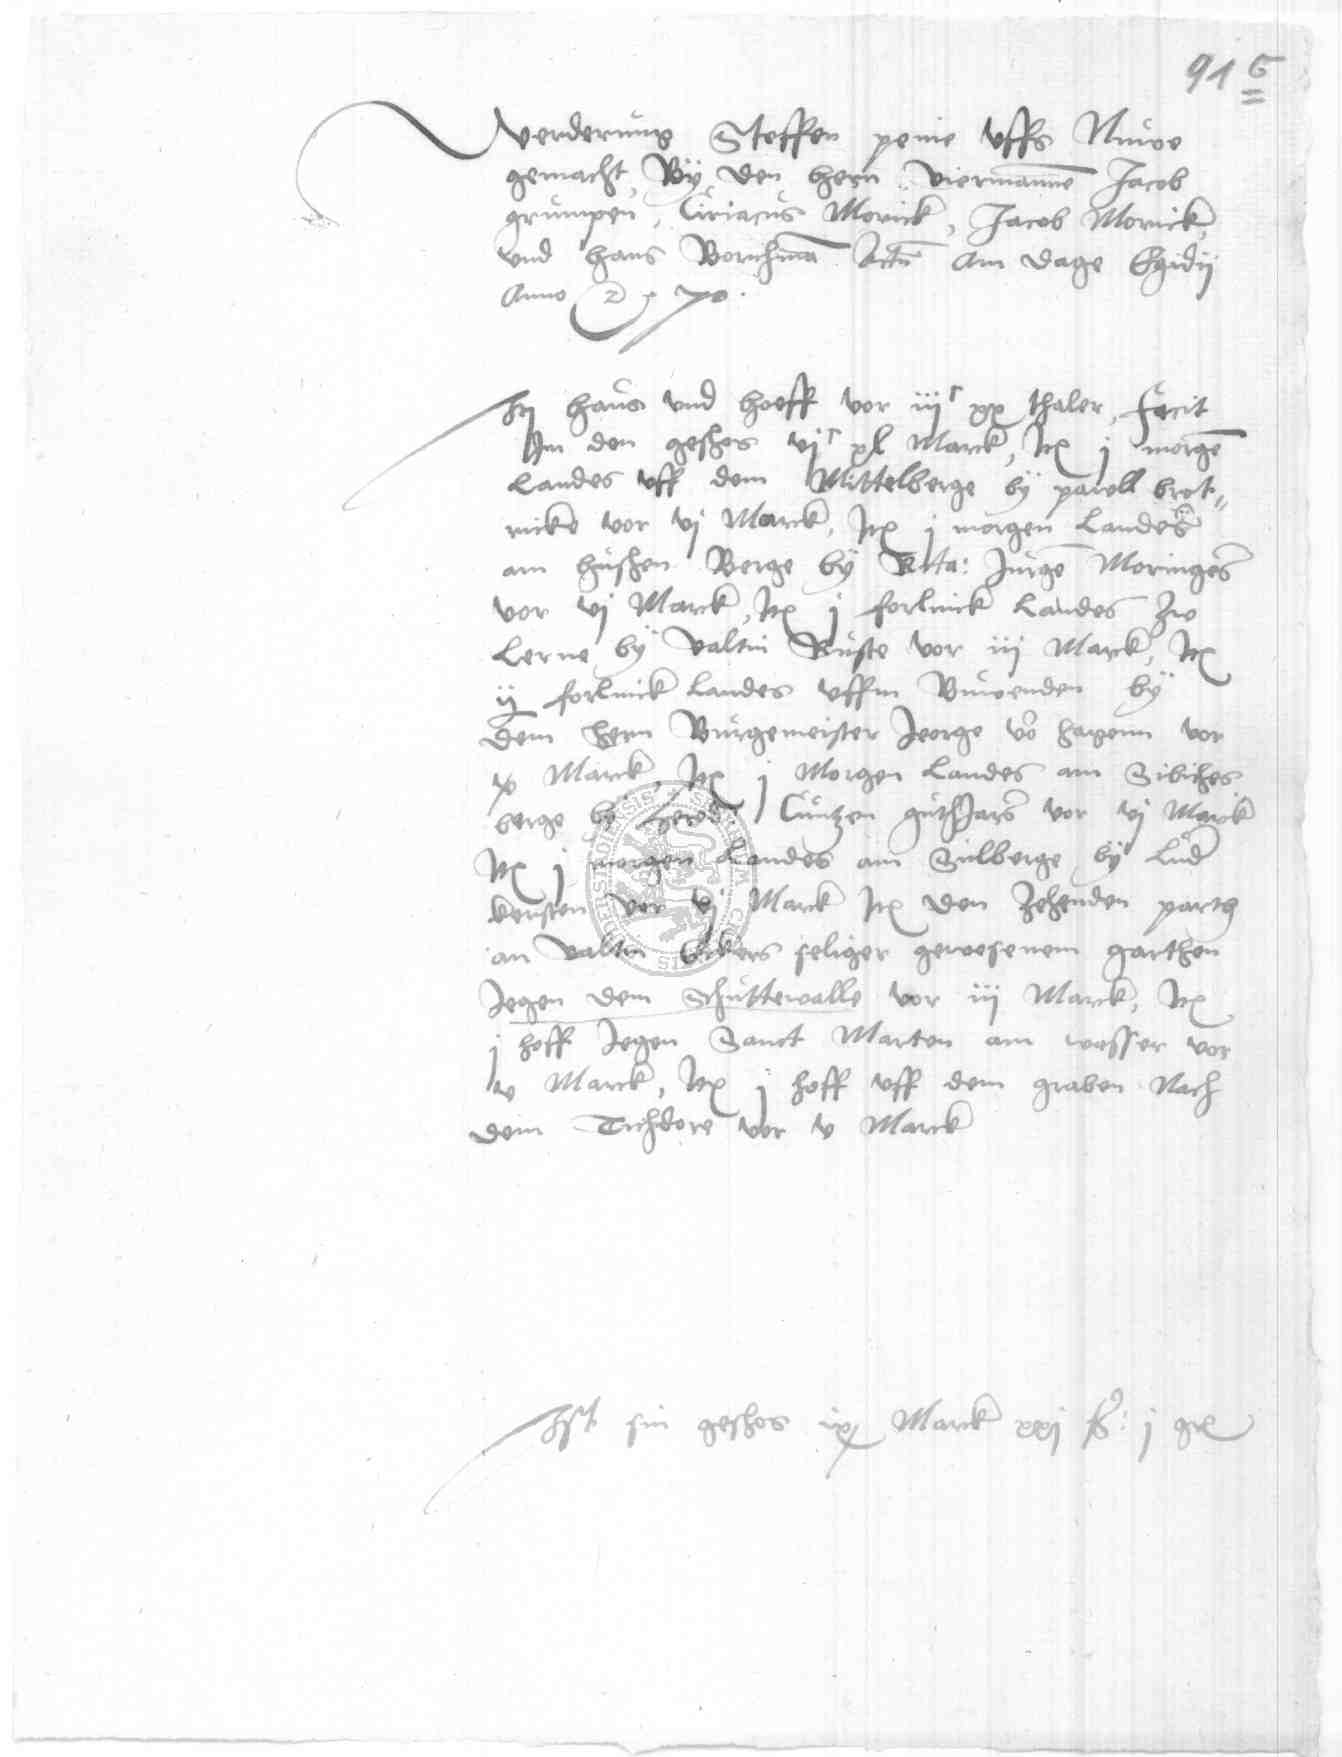 91 6
Verderung Steffen penie uffs Nuwe
gemacht, By den hern viermanne Jacob
grumpen, Ciriacus Morick, Jacob Morick,
und hans Borchma Actu Am dage Egidij
Anno
hans und hoeff vor iijc xx thaler, facit
In den geschos vjc xl Marck, It j morge
Landes uff dem Mittelberge by pawell brot-
ricke vor vj Marck, It j morgen Landes
am huschen Berge by Jurge Moringes
vor vj Marck, It j forlinck Landes zw
Lerne by Valtin Ruste vor iij Marck, It
ij forlinck Landes uffm by
dem hern Burgemeister Jeorge vo hagenn vor
x Marck It j Morgen Landes am Sibiches
berge by Cuntzen guthJars vor vj Marck
It j morgen Landes am Sulberge by Lud
kersten vor vj Marck It den Zehenden parth
an Valtin seliger gewesenem garthen
Jegen dem Schuttewalle vor iij Marck, It
j hoff Jegen Sanct Marten am wasser vor
v Marck, It j hoff uff dem graben Nach
dem Tichdore vor v Marck
Ist sin geschos ix Marck xxj ß: j